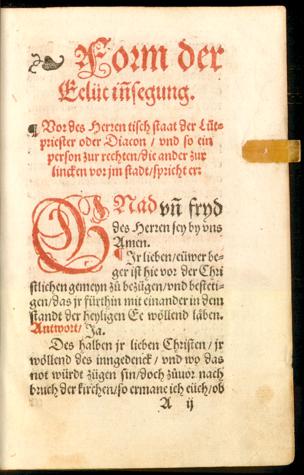 Form der
Eelüt iñsegung.
¶ Vor des Herren tisch staat der Lüt-
priester oder Diacon / vnd so ein
person zur rechten / die ander zur
lincken vor jm stadt / spricht er:
GNad vñ fryd
des Herren sey by vns
Amen.
¶ Jr lieben / eüwer be-
ger ist hie vor der Chri
stlichen gemeyn zů bezügen / vnd besteti-
gen / das jr fürthin mit einander in dem
standt der heyligen Ee wöllend läben.
Antwort / Ja.
Des halben jr lieben Christen / jr
wöllend des inngedenck / vnd wo das
not würdt zügen sin / doch zůuor nach
bruch der kirchen / so ermane ich eüch / ob
A ij